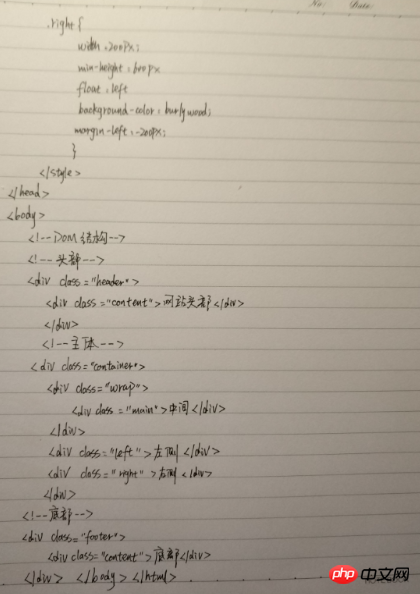 No: Date:
.right {
width: 200px;
min-height: 600px
float: left
background-color: burlywood;
margin-left: -200px;
}
</style>
</head>
<body>
<!-- DOM 结构 -->
<!-- 头部 -->
<div class="header">
<div class="content">网站头部</div>
</div>
<!-- 主体 -->
<div class="container">
<div class="wrap">
<div class="main">中间</div>
</div>
<div class="left">左侧</div>
<div class="right">右侧</div>
</div>
<!-- 底部 -->
<div class="footer">
<div class="content">底部</div>
</div> </body> </html>
php 中文网